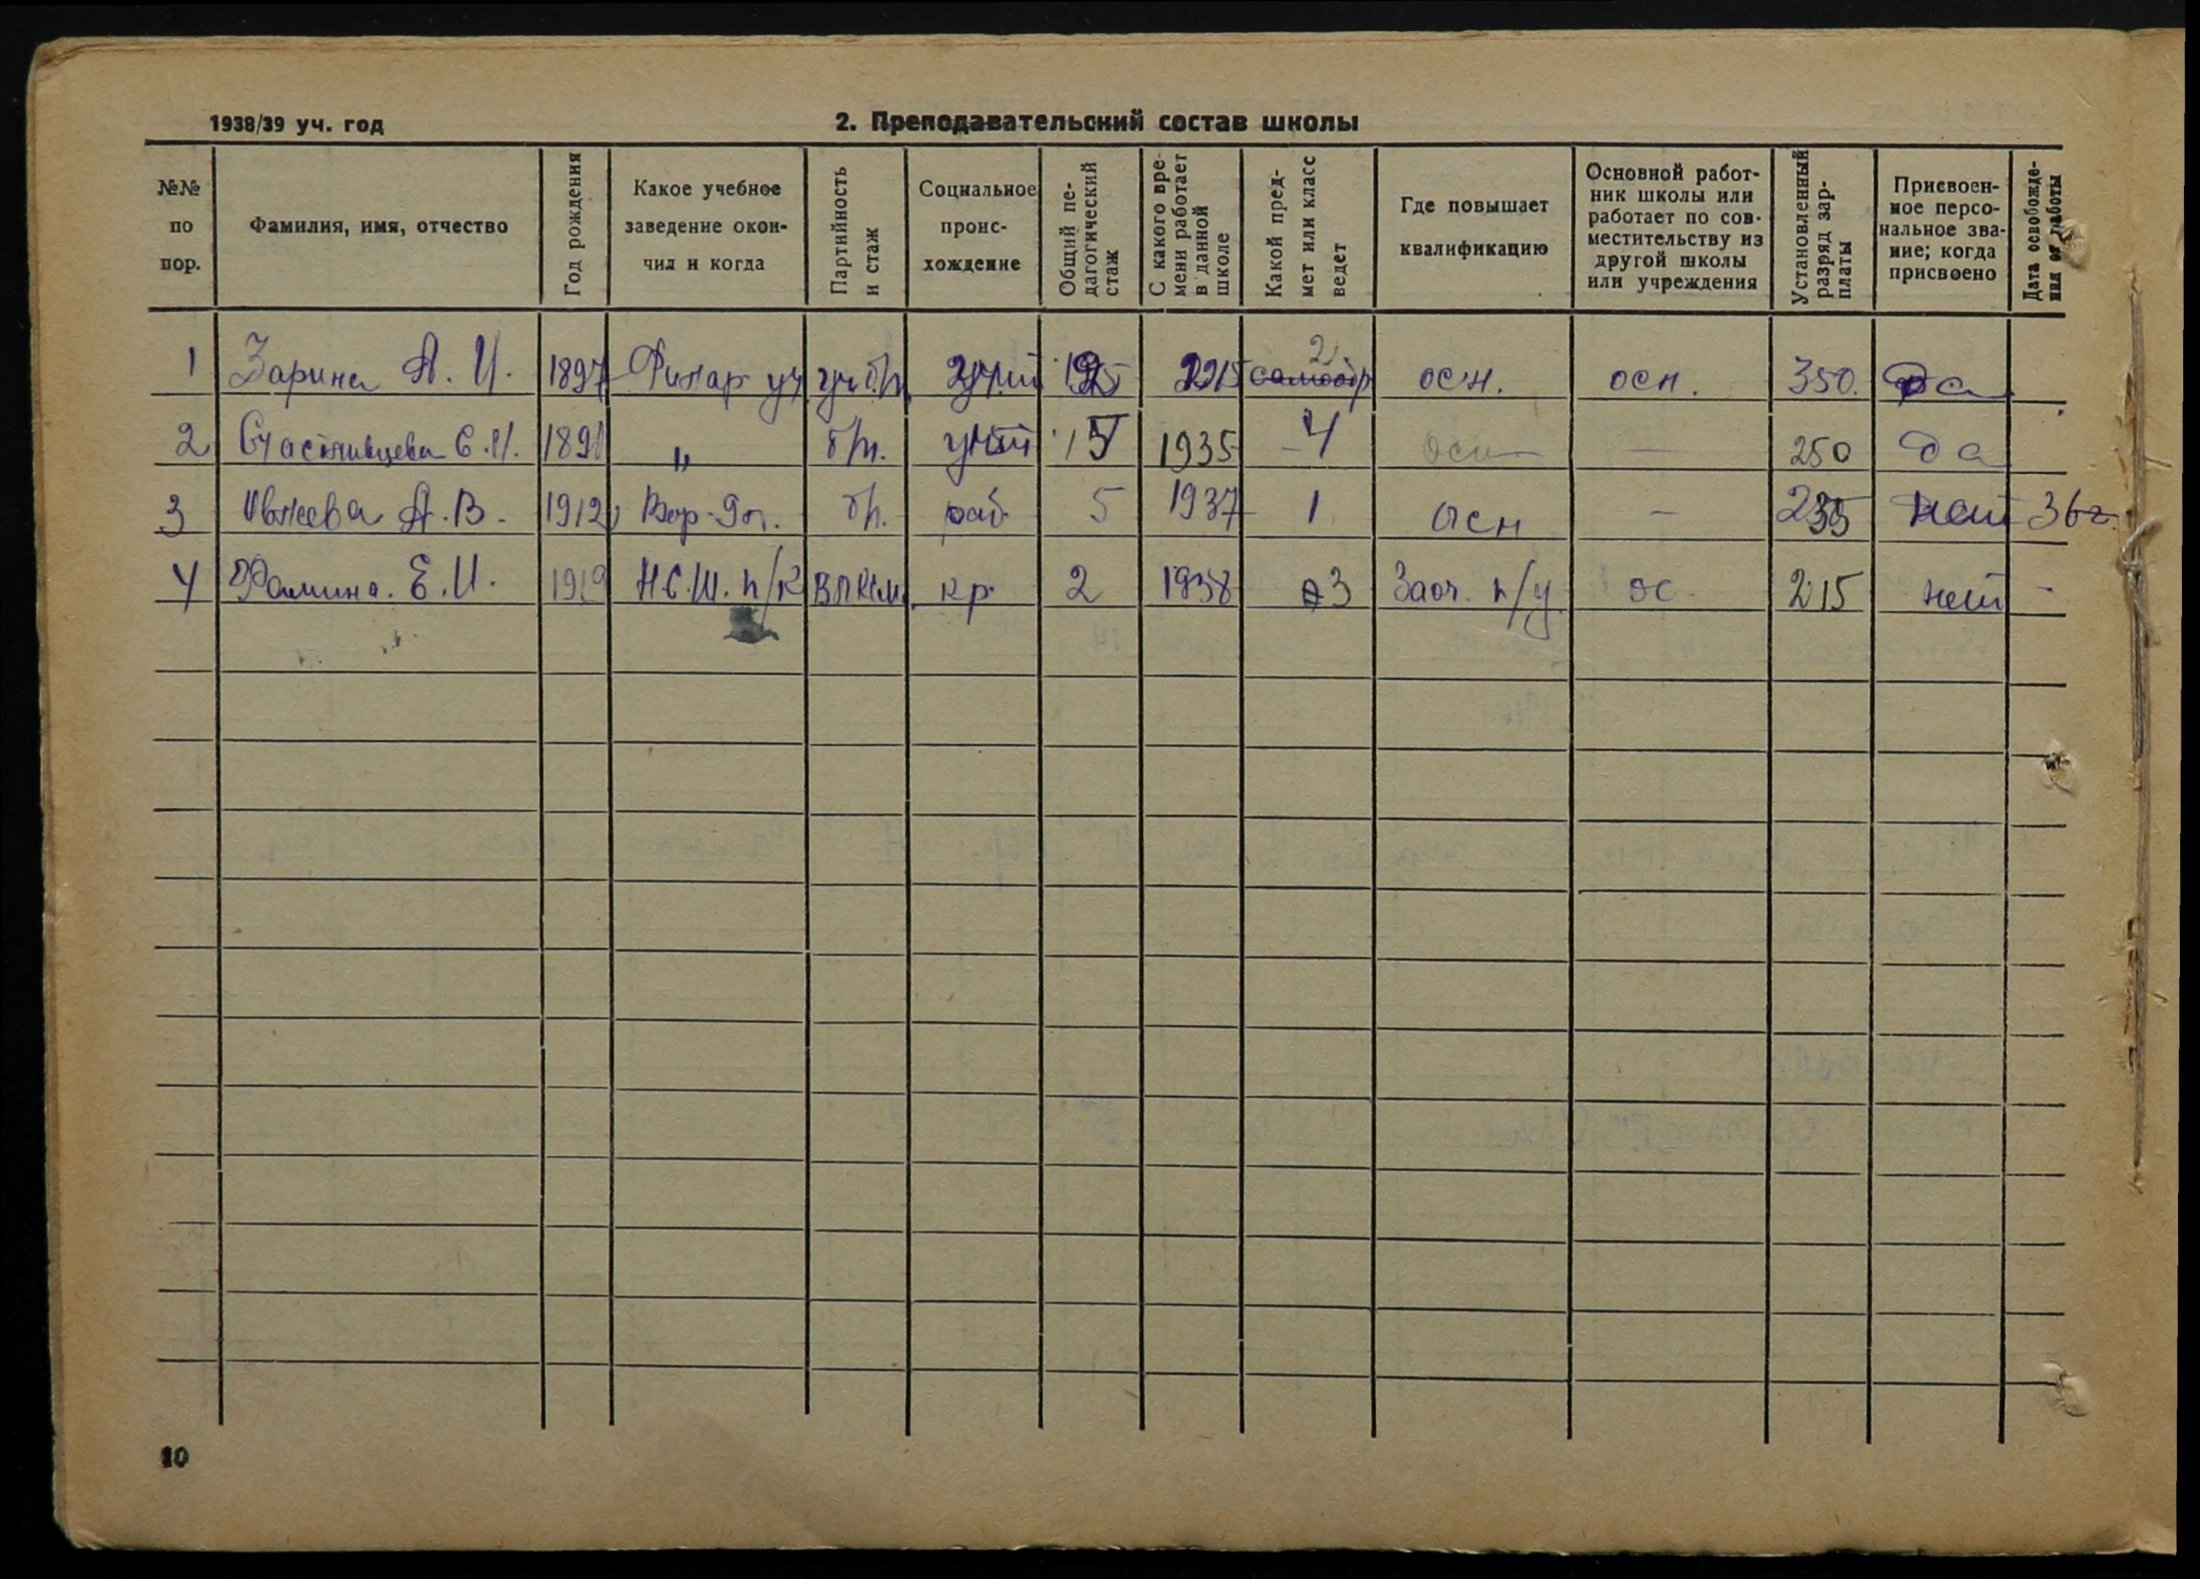 1938/39 уч. год
2. Преподавательский состав школы
№№ по пор.
Фамилия, имя, отчество
Год рождения
Какое учебное заведение окончил и когда
Партийность и стаж
Социальное происхождение
Общий педагогический стаж
С какого времени работает в данной школе
Какой предмет или класс ведет
Где повышает квалификацию
Основной работник школы или работает по совместительству из другой школы или учреждения
Установленный разряд зарплаты
Присвоенное персональное звание; когда присвоено
Дата освобождения от работы
1 Зарина А. И. 1897 2 осн. осн. 350. да
2 Счастливцева С. И. 1891 " б/п. 15 1935 4 осн — 250 да
3 А. В. 1912 б/п. раб 5 1937 1 осн — 235 нет 36 г.
4 Фамина. Е. И. 1919 Н.С.Ш. п/к ВЛКСМ. кр. 2 1938 3 Заоч. п/у ос. 215 нет -
10